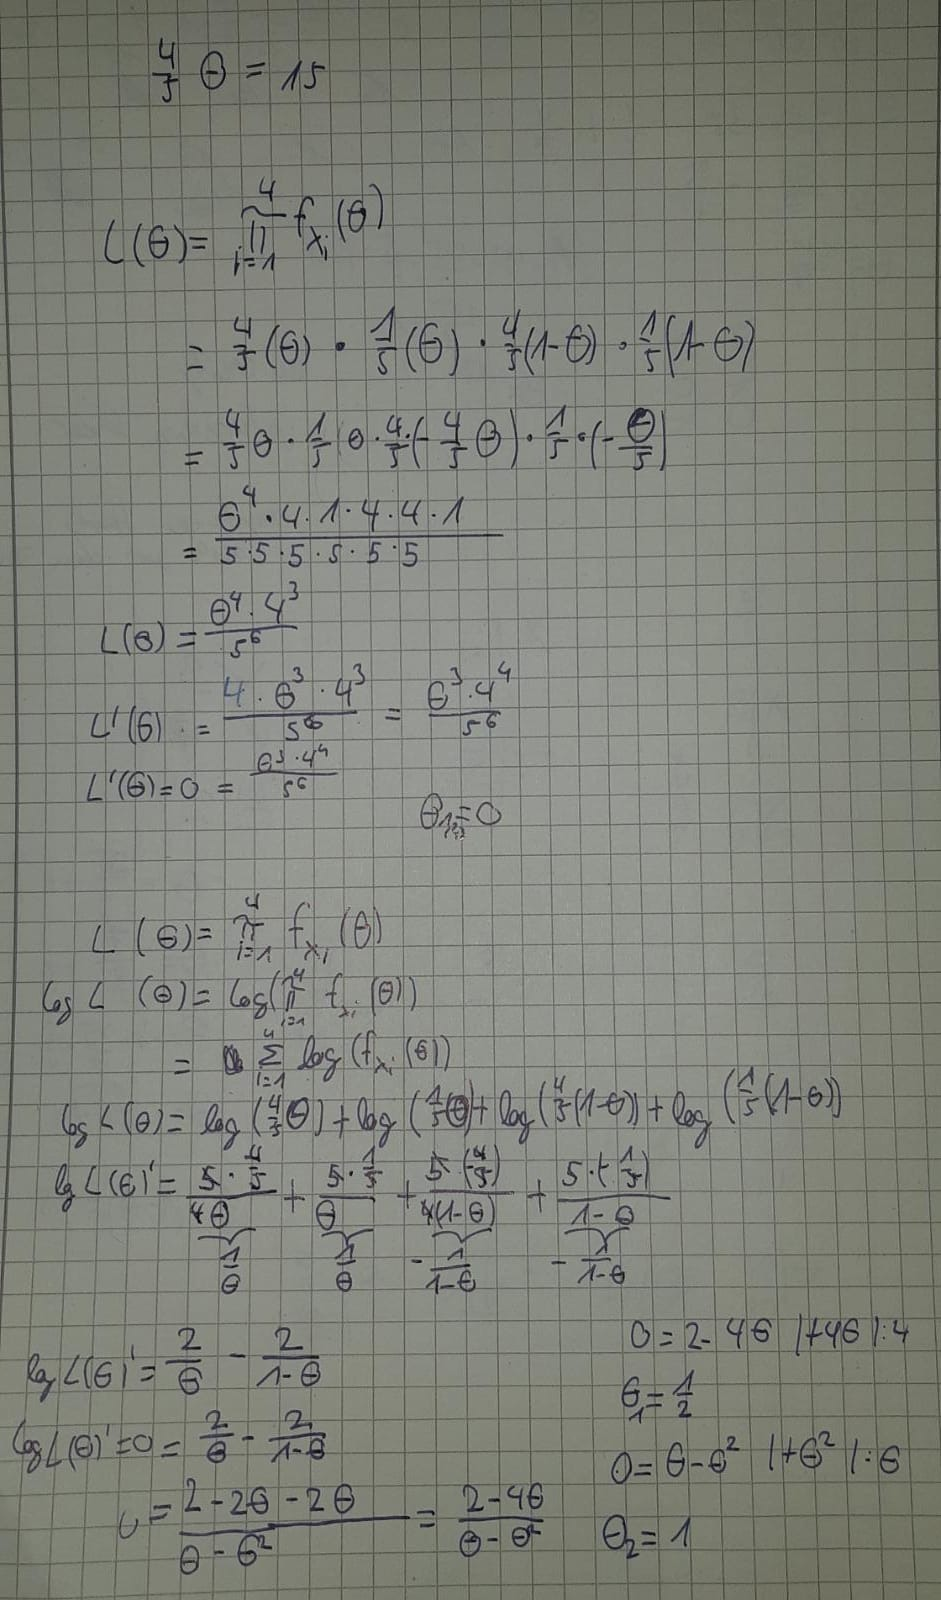 4/5 θ = 15
L(θ) = ∏_{i=1}^{4} f_{x_i}(θ)
= 4/5 (θ) · 1/5 (θ) · 4/5 (1-θ) · 1/5 (1-θ)
= 4/5 θ · 1/5 θ · 4/5 · (-4/5 θ) · 1/5 · (-θ/5)
= (θ^4 · 4 · 1 · 4 · 4 · 1)/(5 · 5 · 5 · 5 · 5 · 5)
L(θ) = (θ^4 · 4^3)/5^6
L'(θ) = (4 · θ^3 · 4^3)/5^6 = (θ^3 · 4^4)/5^6
L'(θ) = 0 = (θ^3 · 4^4)/5^6
θ_{1,2,3} = 0
L(θ) = ∏_{i=1}^{4} f_{x_i}(θ)
log L(θ) = log(∏_{i=1}^{4} f_{x_i}(θ))
= ∑_{i=1}^{4} log(f_{x_i}(θ))
log L(θ) = log(4/5 θ) + log(1/5 θ) + log(4/5 (1-θ)) + log(1/5 (1-θ))
log L(θ)' = (5 · 4/5)/(4θ) + (5 · 1/5)/θ + (5 · (-4/5))/(4(1-θ)) + (5 · (-1/5))/(1-θ)
1/θ 1/θ -1/(1-θ) -1/(1-θ)
log L(θ)' = 2/θ - 2/(1-θ)
log L(θ)' = 0 = 2/θ - 2/(1-θ)
0 = (2 - 2θ - 2θ)/(θ - θ^2) = (2 - 4θ)/(θ - θ^2)
0 = 2 - 4θ |+4θ |:4
θ_1 = 1/2
0 = θ - θ^2 |+θ^2 |:θ
θ_2 = 1